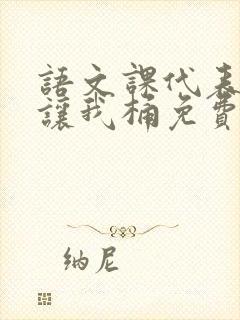 語文課代表
讓我桶免費
纳尼